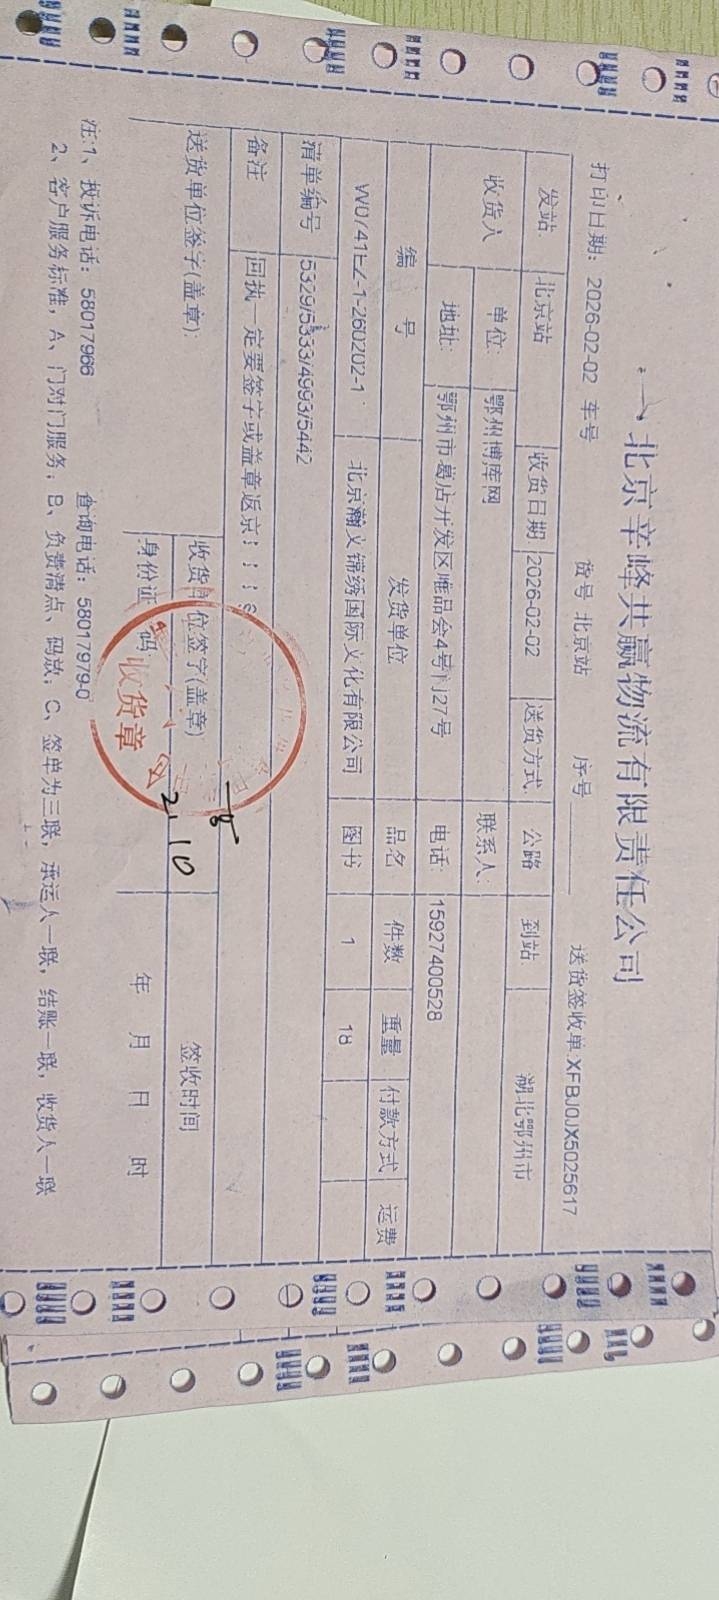 北京辛峰共赢物流有限责任公司
打印日期: 2026-02-02 车号 货号 北京站 序号 送货签收单:XFBJ0JX5025617
发站 北京站 收货日期 2026-02-02 送货方式 公路 到站 湖北鄂州市
收货人 单位: 鄂州博库网 联系人:
地址: 鄂州市葛店开发区唯品会4号门27号 电话: 15927400528
编号 发货单位 品名 件数 重量 付款方式 运费
北京瀚文锦绣国际文化有限公司 图书 1 18
清单编号 5329/5333/4993/5442
备注 回执一定要签字或盖章返京!!!
送货单位签字(盖章): 收货单位签字(盖章) 签收时间
身份证 码 年 月 日 时
收货章
2.10
注:1、投诉电话: 58017966 查询电话: 58017979-0
2、客户服务标准, A、门对门服务; B、负责清点、码放; C、签单为三联, 承运人一联, 结账一联, 收货人一联